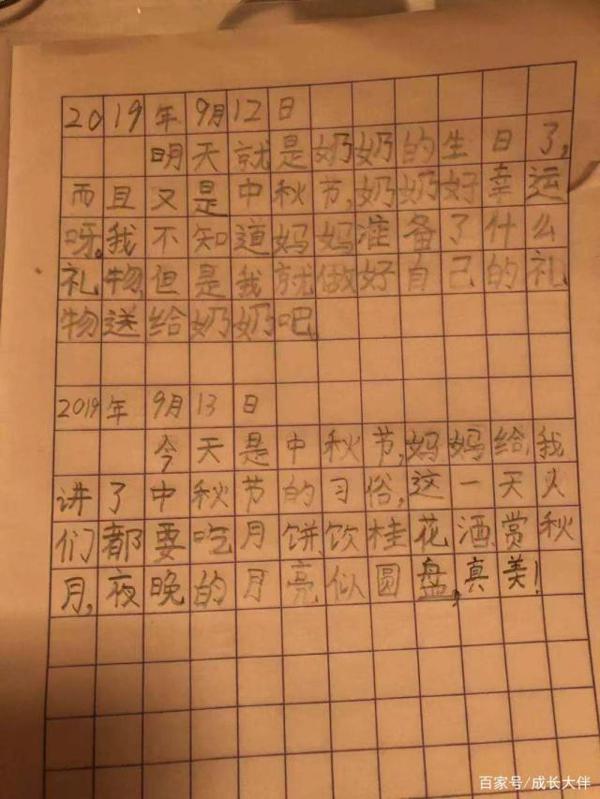 2019年9月12日
明天就是奶奶的生日了,
而且又是中秋节,奶奶好幸运
呀。我不知道妈妈准备了什么
礼物,但是我就做好自己的礼
物送给奶奶吧
2019年9月13日
今天是中秋节,妈妈给我
讲了中秋节的习俗,这一天人
们都要吃月饼、饮桂花酒、赏秋
月,夜晚的月亮似圆盘,真美!
百家号/成长大伴